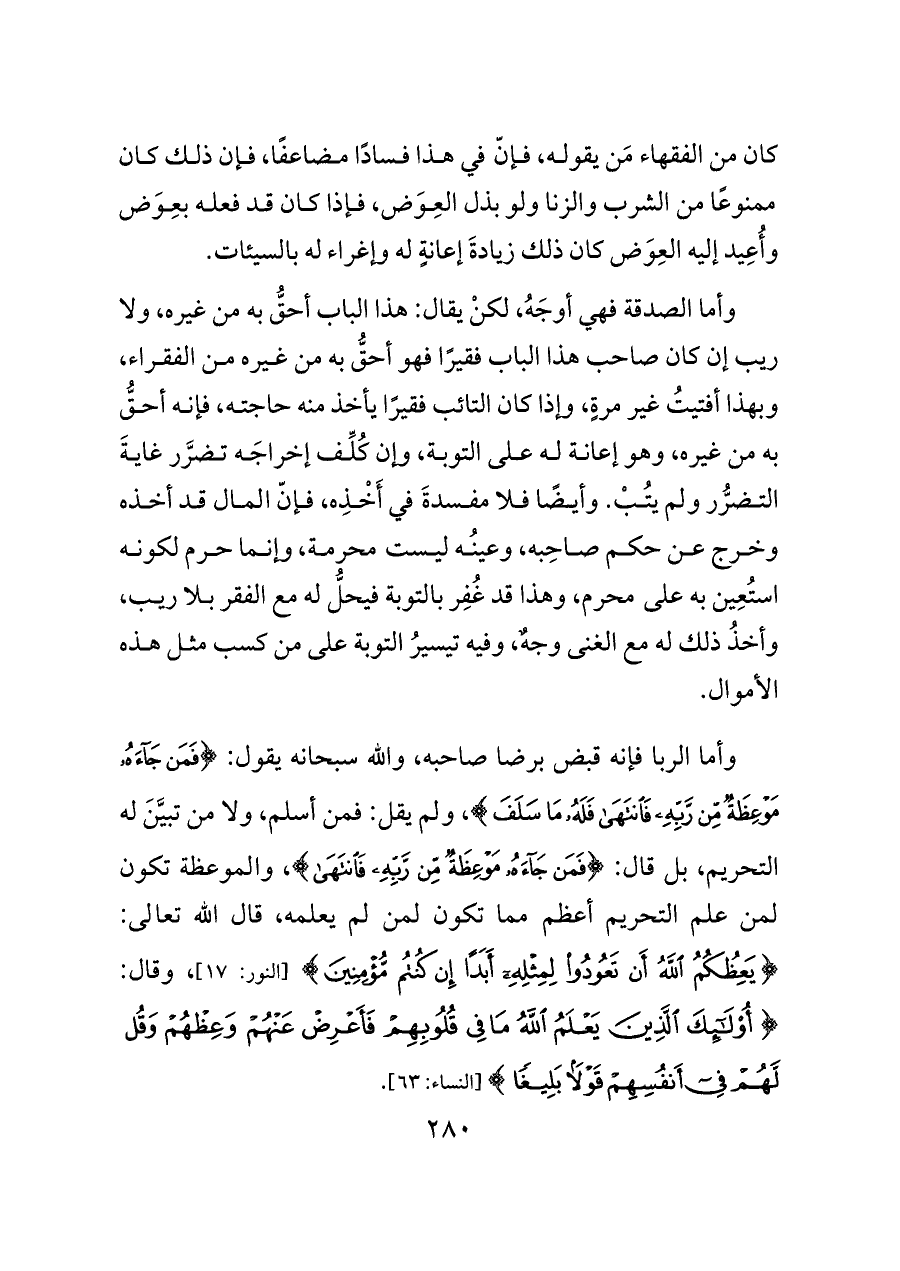 كان من الفقهاء مَن يقوله، فإنّ في هذا فسادًا مضاعفًا، فإن ذلك كان
ممنوعًا من الشرب والزنا ولو بذل العِوَض، فإذا كان قد فعله بعِوَض
وأُعِيد إليه العِوَض كان ذلك زيادةَ إعانةٍ له وإغراء له بالسيئات.
وأما الصدقة فهي أوجَهُ، لكنْ يقال: هذا الباب أحقُّ به من غيره، ولا
ريب إن كان صاحب هذا الباب فقيرًا فهو أحقُّ به من غيره من الفقراء،
وبهذا أفتيتُ غير مرةٍ، وإذا كان التائب فقيرًا يأخذ منه حاجته، فإنه أحقُّ
به من غيره، وهو إعانة له على التوبة، وإن كُلِّف إخراجَه تضرَّر غايةَ
التضرُّر ولم يتُبْ. وأيضًا فلا مفسدةَ في أَخْذِه، فإنّ المال قد أخذه
وخرج عن حكم صاحِبه، وعينُه ليست محرمة، وإنما حرم لكونه
استُعِين به على محرم، وهذا قد غُفِر بالتوبة فيحلُّ له مع الفقر بلا ريب،
وأخذُ ذلك له مع الغنى وجهٌ، وفيه تيسيرُ التوبة على من كسب مثل هذه
الأموال.
وأما الربا فإنه قبض برضا صاحبه، والله سبحانه يقول: ﴿فَمَن جَآءَهُۥ
مَوۡعِظَةٞ مِّن رَّبِّهِۦ فَٱنتَهَىٰ فَلَهُۥ مَا سَلَفَ﴾، ولم يقل: فمن أسلم، ولا من تبيَّنَ له
التحريم، بل قال: ﴿فَمَن جَآءَهُۥ مَوۡعِظَةٞ مِّن رَّبِّهِۦ فَٱنتَهَىٰ﴾، والموعظة تكون
لمن علم التحريم أعظم مما تكون لمن لم يعلمه، قال الله تعالى:
﴿يَعِظُكُمُ ٱللَّهُ أَن تَعُودُواْ لِمِثۡلِهِۦٓ أَبَدًا إِن كُنتُم مُّؤۡمِنِينَ﴾ [النور: ١٧]، وقال:
﴿أُوْلَٰٓئِكَ ٱلَّذِينَ يَعۡلَمُ ٱللَّهُ مَا فِي قُلُوبِهِمۡ فَأَعۡرِضۡ عَنۡهُمۡ وَعِظۡهُمۡ وَقُل
لَّهُمۡ فِيٓ أَنفُسِهِمۡ قَوۡلَۢا بَلِيغٗا﴾ [النساء: ٦٣].
٢٨٠